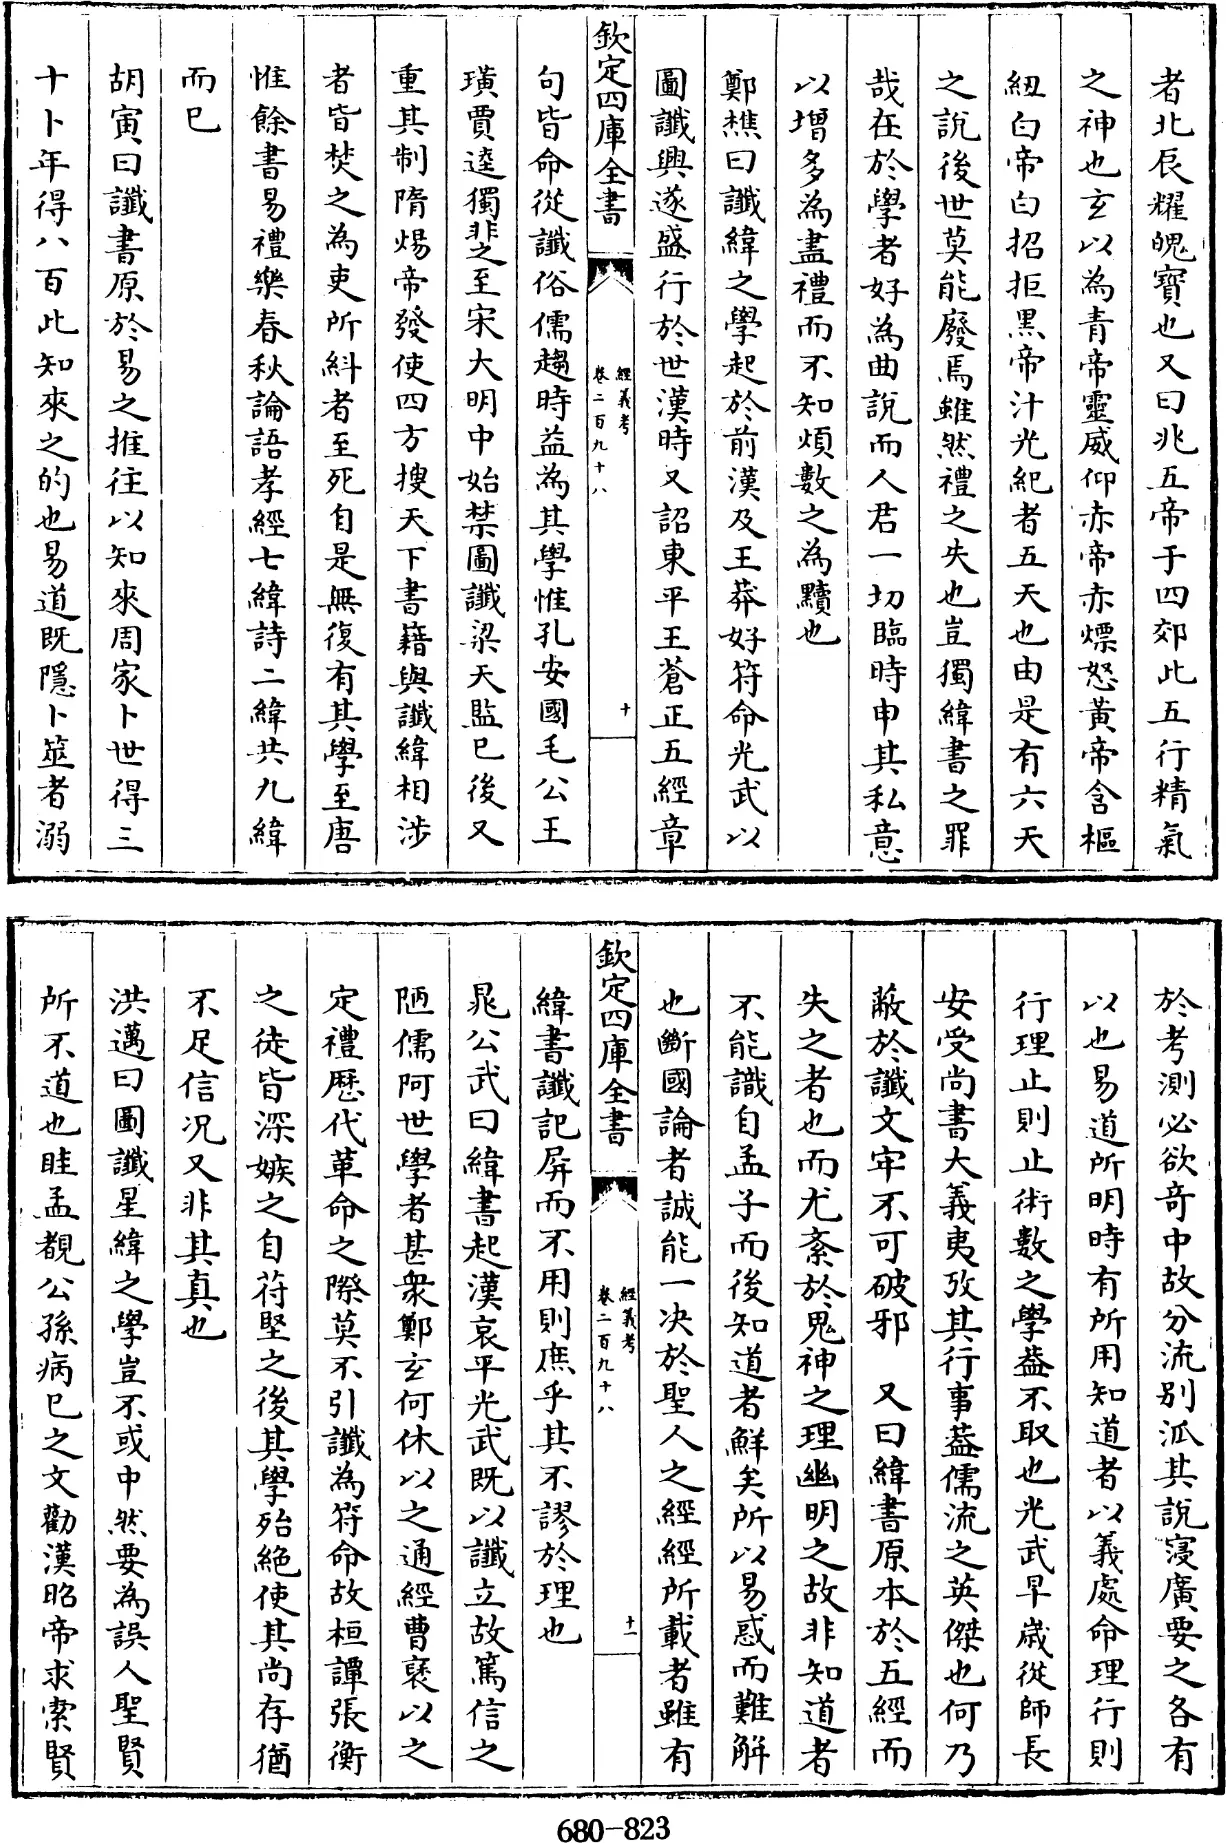 者北辰耀魄寶也又曰兆五帝于四郊此五行精氣
之神也玄以為青帝靈威仰赤帝赤熛怒黃帝含樞
紐白帝白招拒黑帝汁光紀者五天也由是有六天
之說後世莫能廢焉雖然禮之失也豈獨緯書之罪
哉在於學者好為曲說而人君一切臨時申其私意
以增多為盡禮而不知煩數之為黷也
鄭樵曰讖緯之學起於前漢及王莽好符命光武以
圖讖興遂盛行於世漢時又詔東平王蒼正五經章
欽定四庫全書
經義考
卷二百九十八
十
句皆命從讖俗儒趨時益為其學惟孔安國毛公王
璜賈逵獨非之至宋大明中始禁圖讖梁天監已後又
重其制隋煬帝發使四方搜天下書籍與讖緯相涉
者皆焚之為吏所糾者至死自是無復有其學至唐
惟餘書易禮樂春秋論語孝經七緯詩二緯共九緯
而已
胡寅曰讖書原於易之推往以知來周家卜世得三
十卜年得八百此知來之的也易道既隱卜筮者溺
於考測必欲奇中故分流別派其說寖廣要之各有
以也易道所明時有所用知道者以義處命理行則
行理止則止術數之學葢不取也光武早歲從師長
安受尚書大義夷攷其行事葢儒流之英傑也何乃
蔽於讖文牢不可破邪　又曰緯書原本於五經而
失之者也而尤紊於鬼神之理幽明之故非知道者
不能識自孟子而後知道者鮮矣所以易惑而難解
也斷國論者誠能一決於聖人之經經所載者雖有
欽定四庫全書
經義考
卷二百九十八
十一
緯書讖記屏而不用則庶乎其不謬於理也
晁公武曰緯書起漢哀平光武既以讖立故篤信之
陋儒阿世學者甚衆鄭玄何休以之通經曹褒以之
定禮歷代革命之際莫不引讖為符命故桓譚張衡
之徒皆深嫉之自苻堅之後其學殆絕使其尚存猶
不足信况又非其真也
洪邁曰圖讖星緯之學豈不或中然要為誤人聖賢
所不道也眭孟覩公孫病已之文勸漢昭帝求索賢
680-823